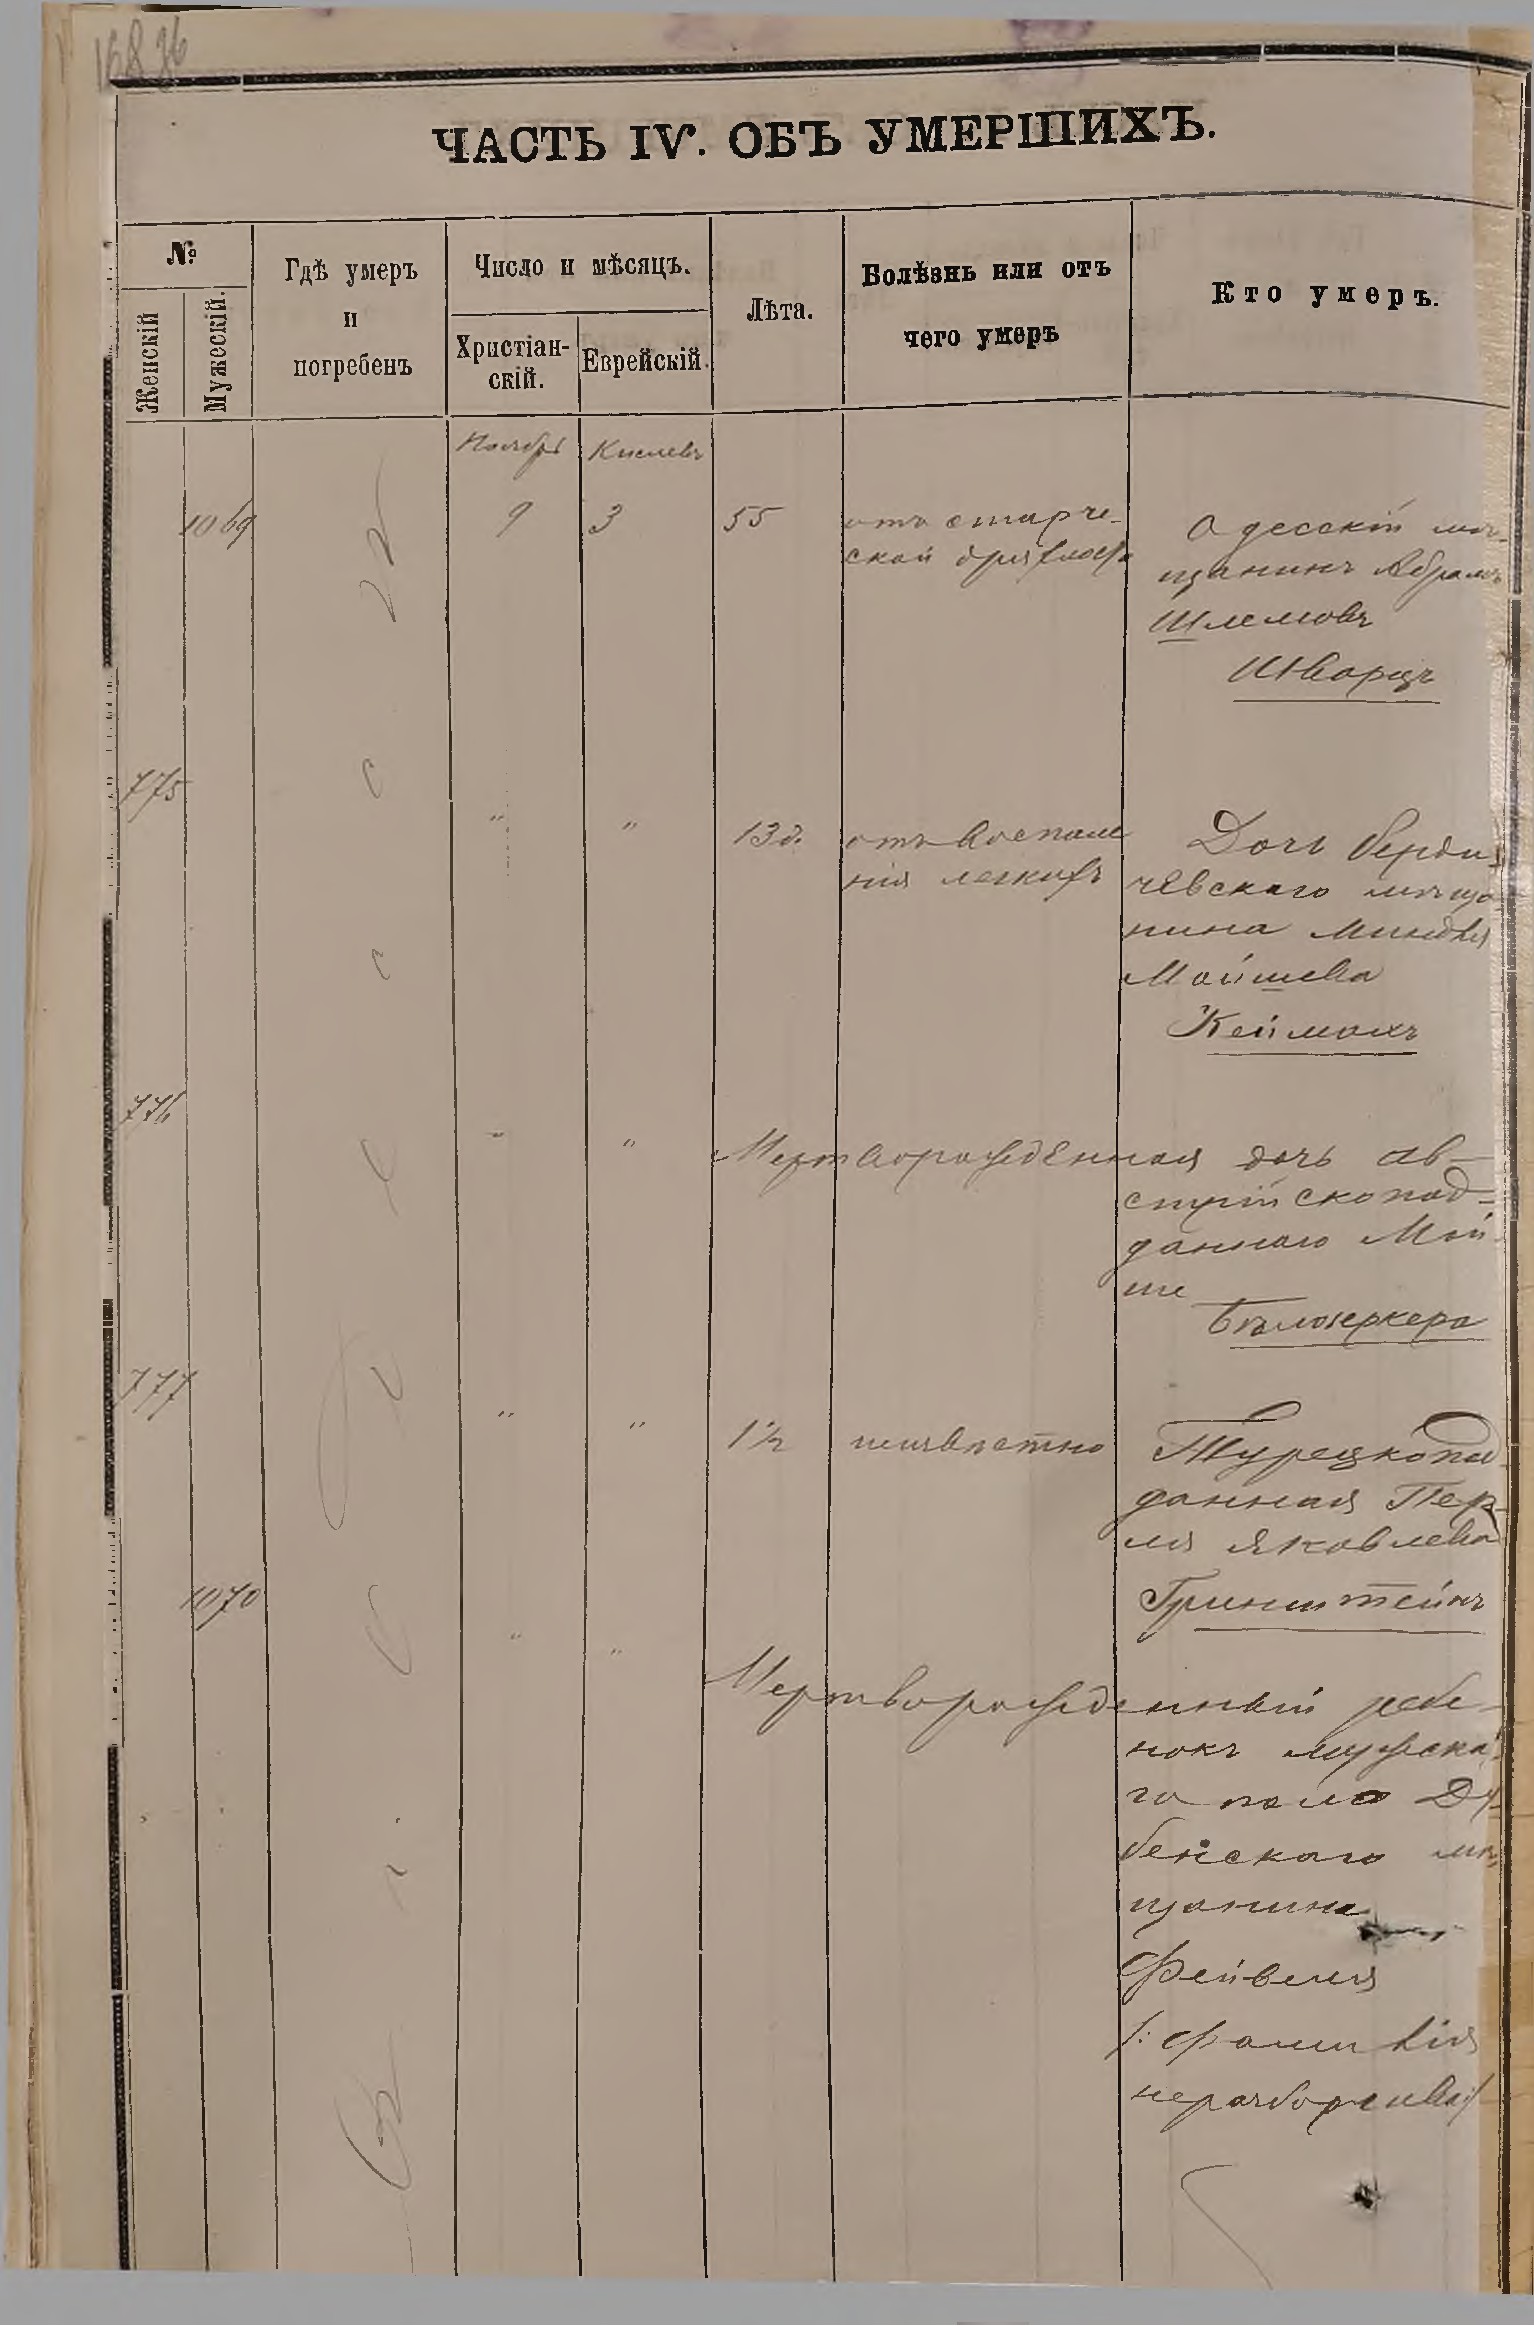 ЧАСТЬ IV. ОБЪ УМЕРШИХЪ.
№
Женскій
Мужескій.
Гдѣ умеръ
и
погребенъ
Число и мѣсяцъ.
Христіан-
скій.
Еврейскій.
Лѣта.
Болѣзнь или отъ
чего умеръ
Кто умеръ.
Ноябрь Кислевъ
1069 9 3 55 отъ старче-
ской дряхлости
Одесскій мѣ-
щанинъ Абрамъ
Шлемовъ
Шварцъ
775 " " 13 д. отъ воспале
нія легкихъ
Дочь берди-
чевскаго мѣща-
нина
Мойшева
Кейманъ
776 " " Мертворожденная дочь ав-
стрійскопод-
даннаго Мой-
ше
Бѣлоцеркера
777 " " 1½ неизвѣстно
Турецкопод-
данная Пер-
ля Яковлева
Гринштейнъ
1070 " " Мертворожденный ребе-
нокъ мужска-
го пола Ду-
бенскаго мѣ-
щанина
Фейвеля
/: фамилія
неразборчива :/